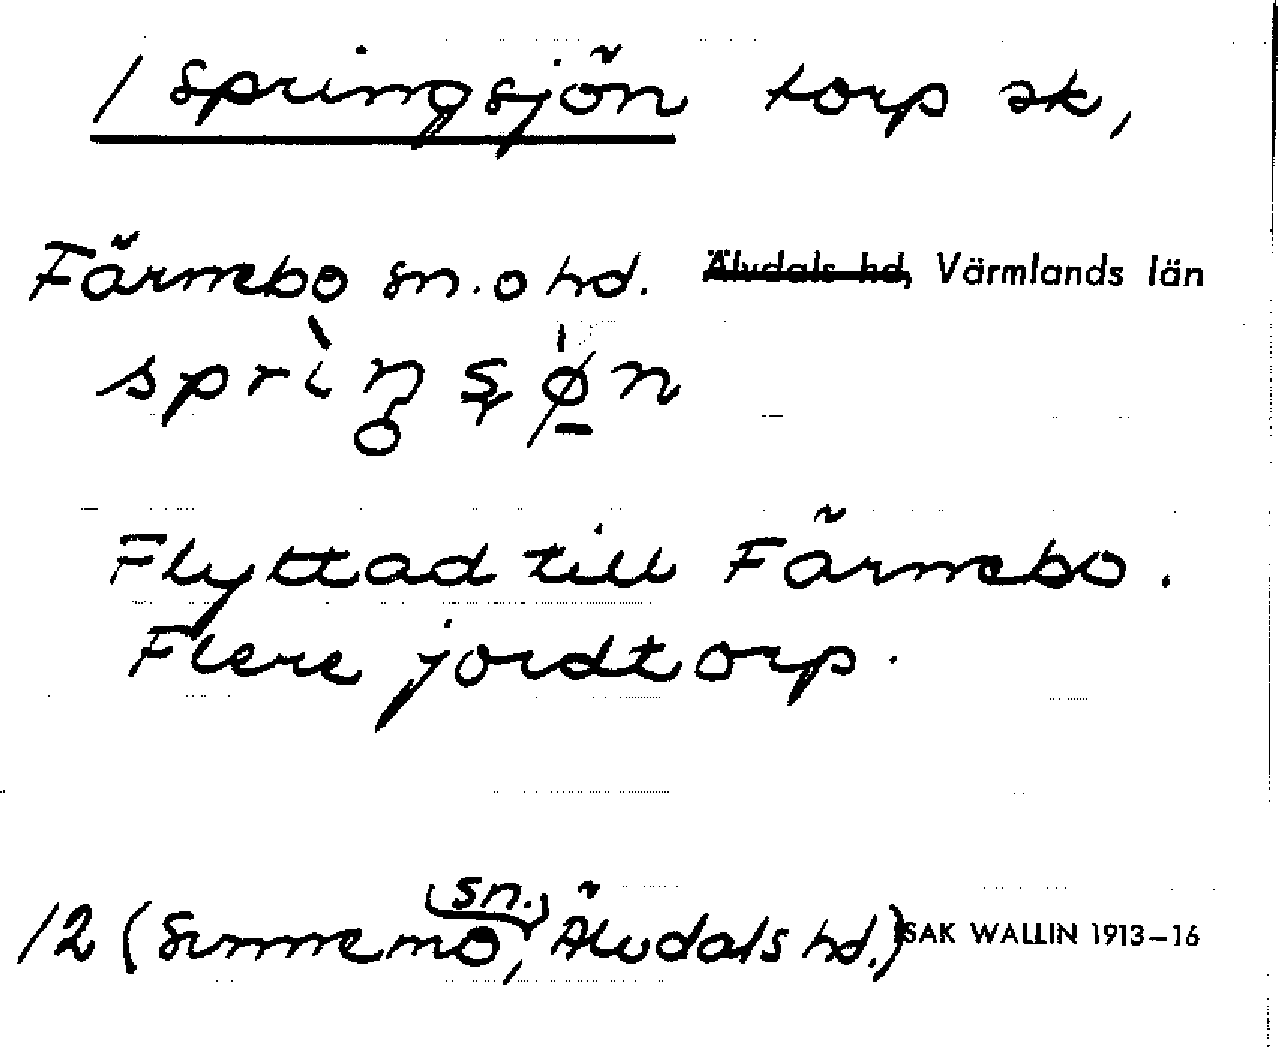 / Springsjön torp sk,
Färnebo sn. o hd. Älvdals hd, Värmlands län
Flyttad till Färnebo.
Flere jordtorp.
/2 (Sunnemo (sn.), Älvdals hd.) SAK WALLIN 1913–16